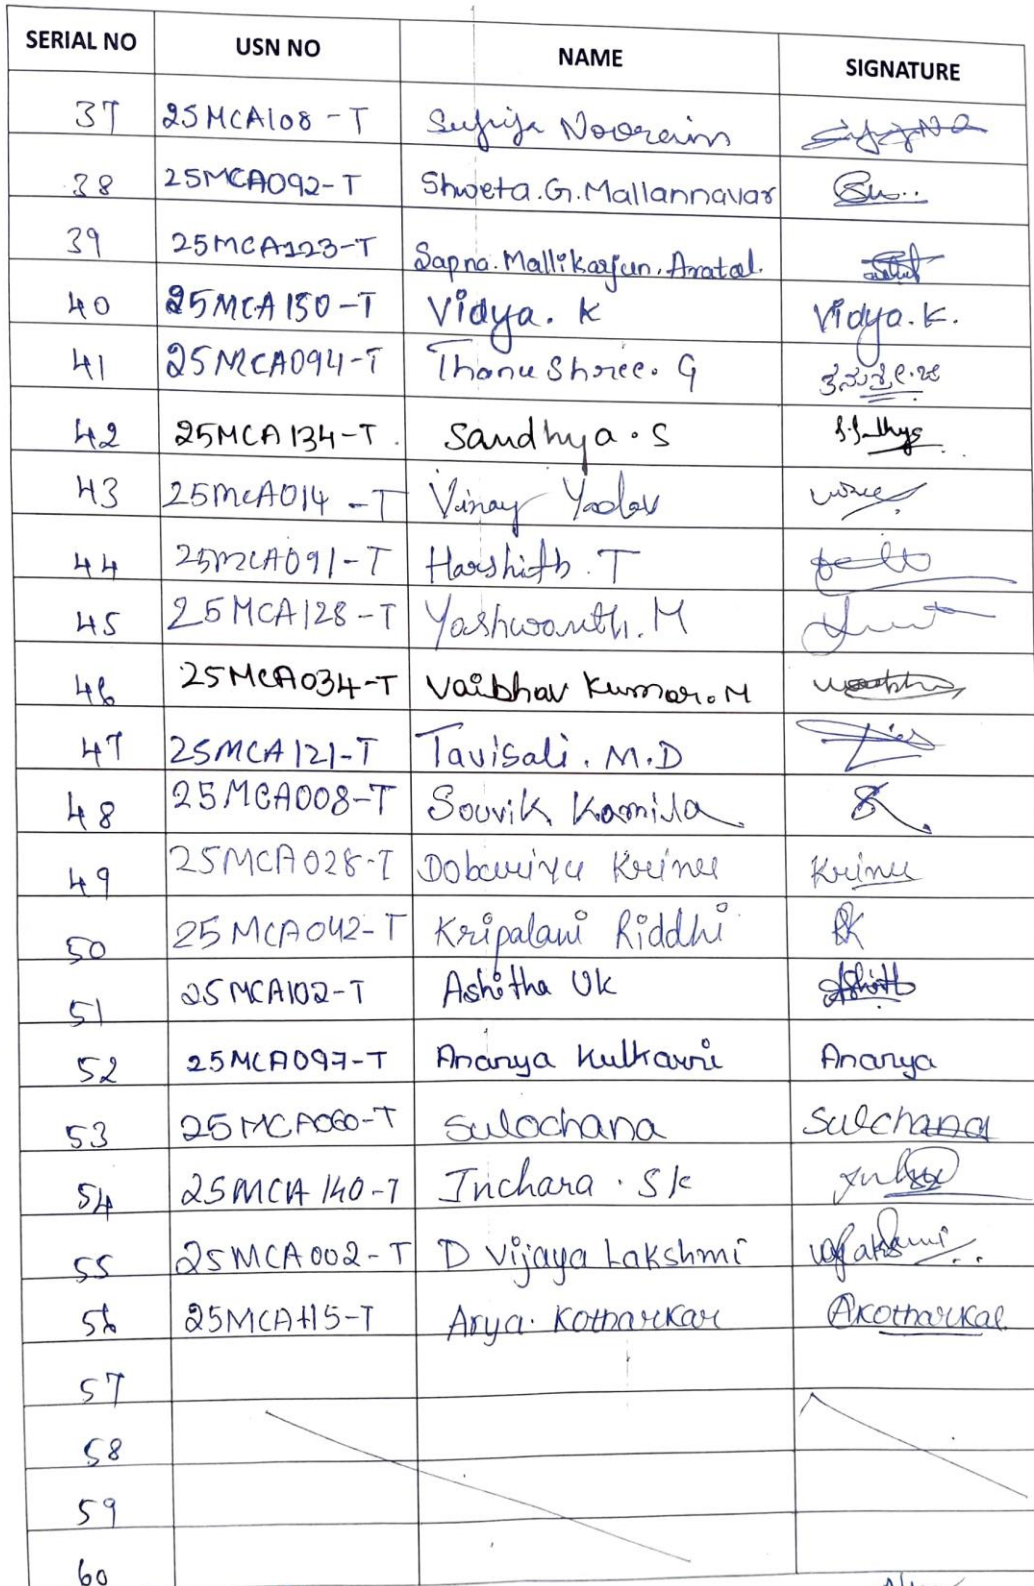 SERIAL NO USN NO NAME SIGNATURE
37 25MCA108-T Sufija Noorain
38 25MCA092-T Shweta.G.Mallannavar
39 25MCA123-T Sapna.Mallikarjun.Aratal.
40 25MCA130-T Vidya. K Vidya.K.
41 25MCA094-T Thanu Shree. G ತನುಶ್ರೀ.ಜಿ
42 25MCA134-T. Sandhya.S
43 25MCA014-T Vinay Yadav
44 25MCA091-T Harshith.T
45 25MCA128-T Yashwanth.M
46 25MCA034-T Vaibhav Kumar.M
47 25MCA121-T Tavisali.M.D
48 25MCA008-T Souvik Kamila
49 25MCA028-T Dobariya Krinu Krinu
50 25MCA042-T Kripalani Riddhi RK
51 25MCA102-T Ashitha Uk
52 25MCA097-T Ananya Kulkarni Ananya
53 25MCA060-T Sulochana Sulchana
54 25MCA140-T Inchara.Sk
55 25MCA002-T D Vijaya Lakshmi
56 25MCA115-T Arya. Kotharkar AKotharkar
57
58
59
60